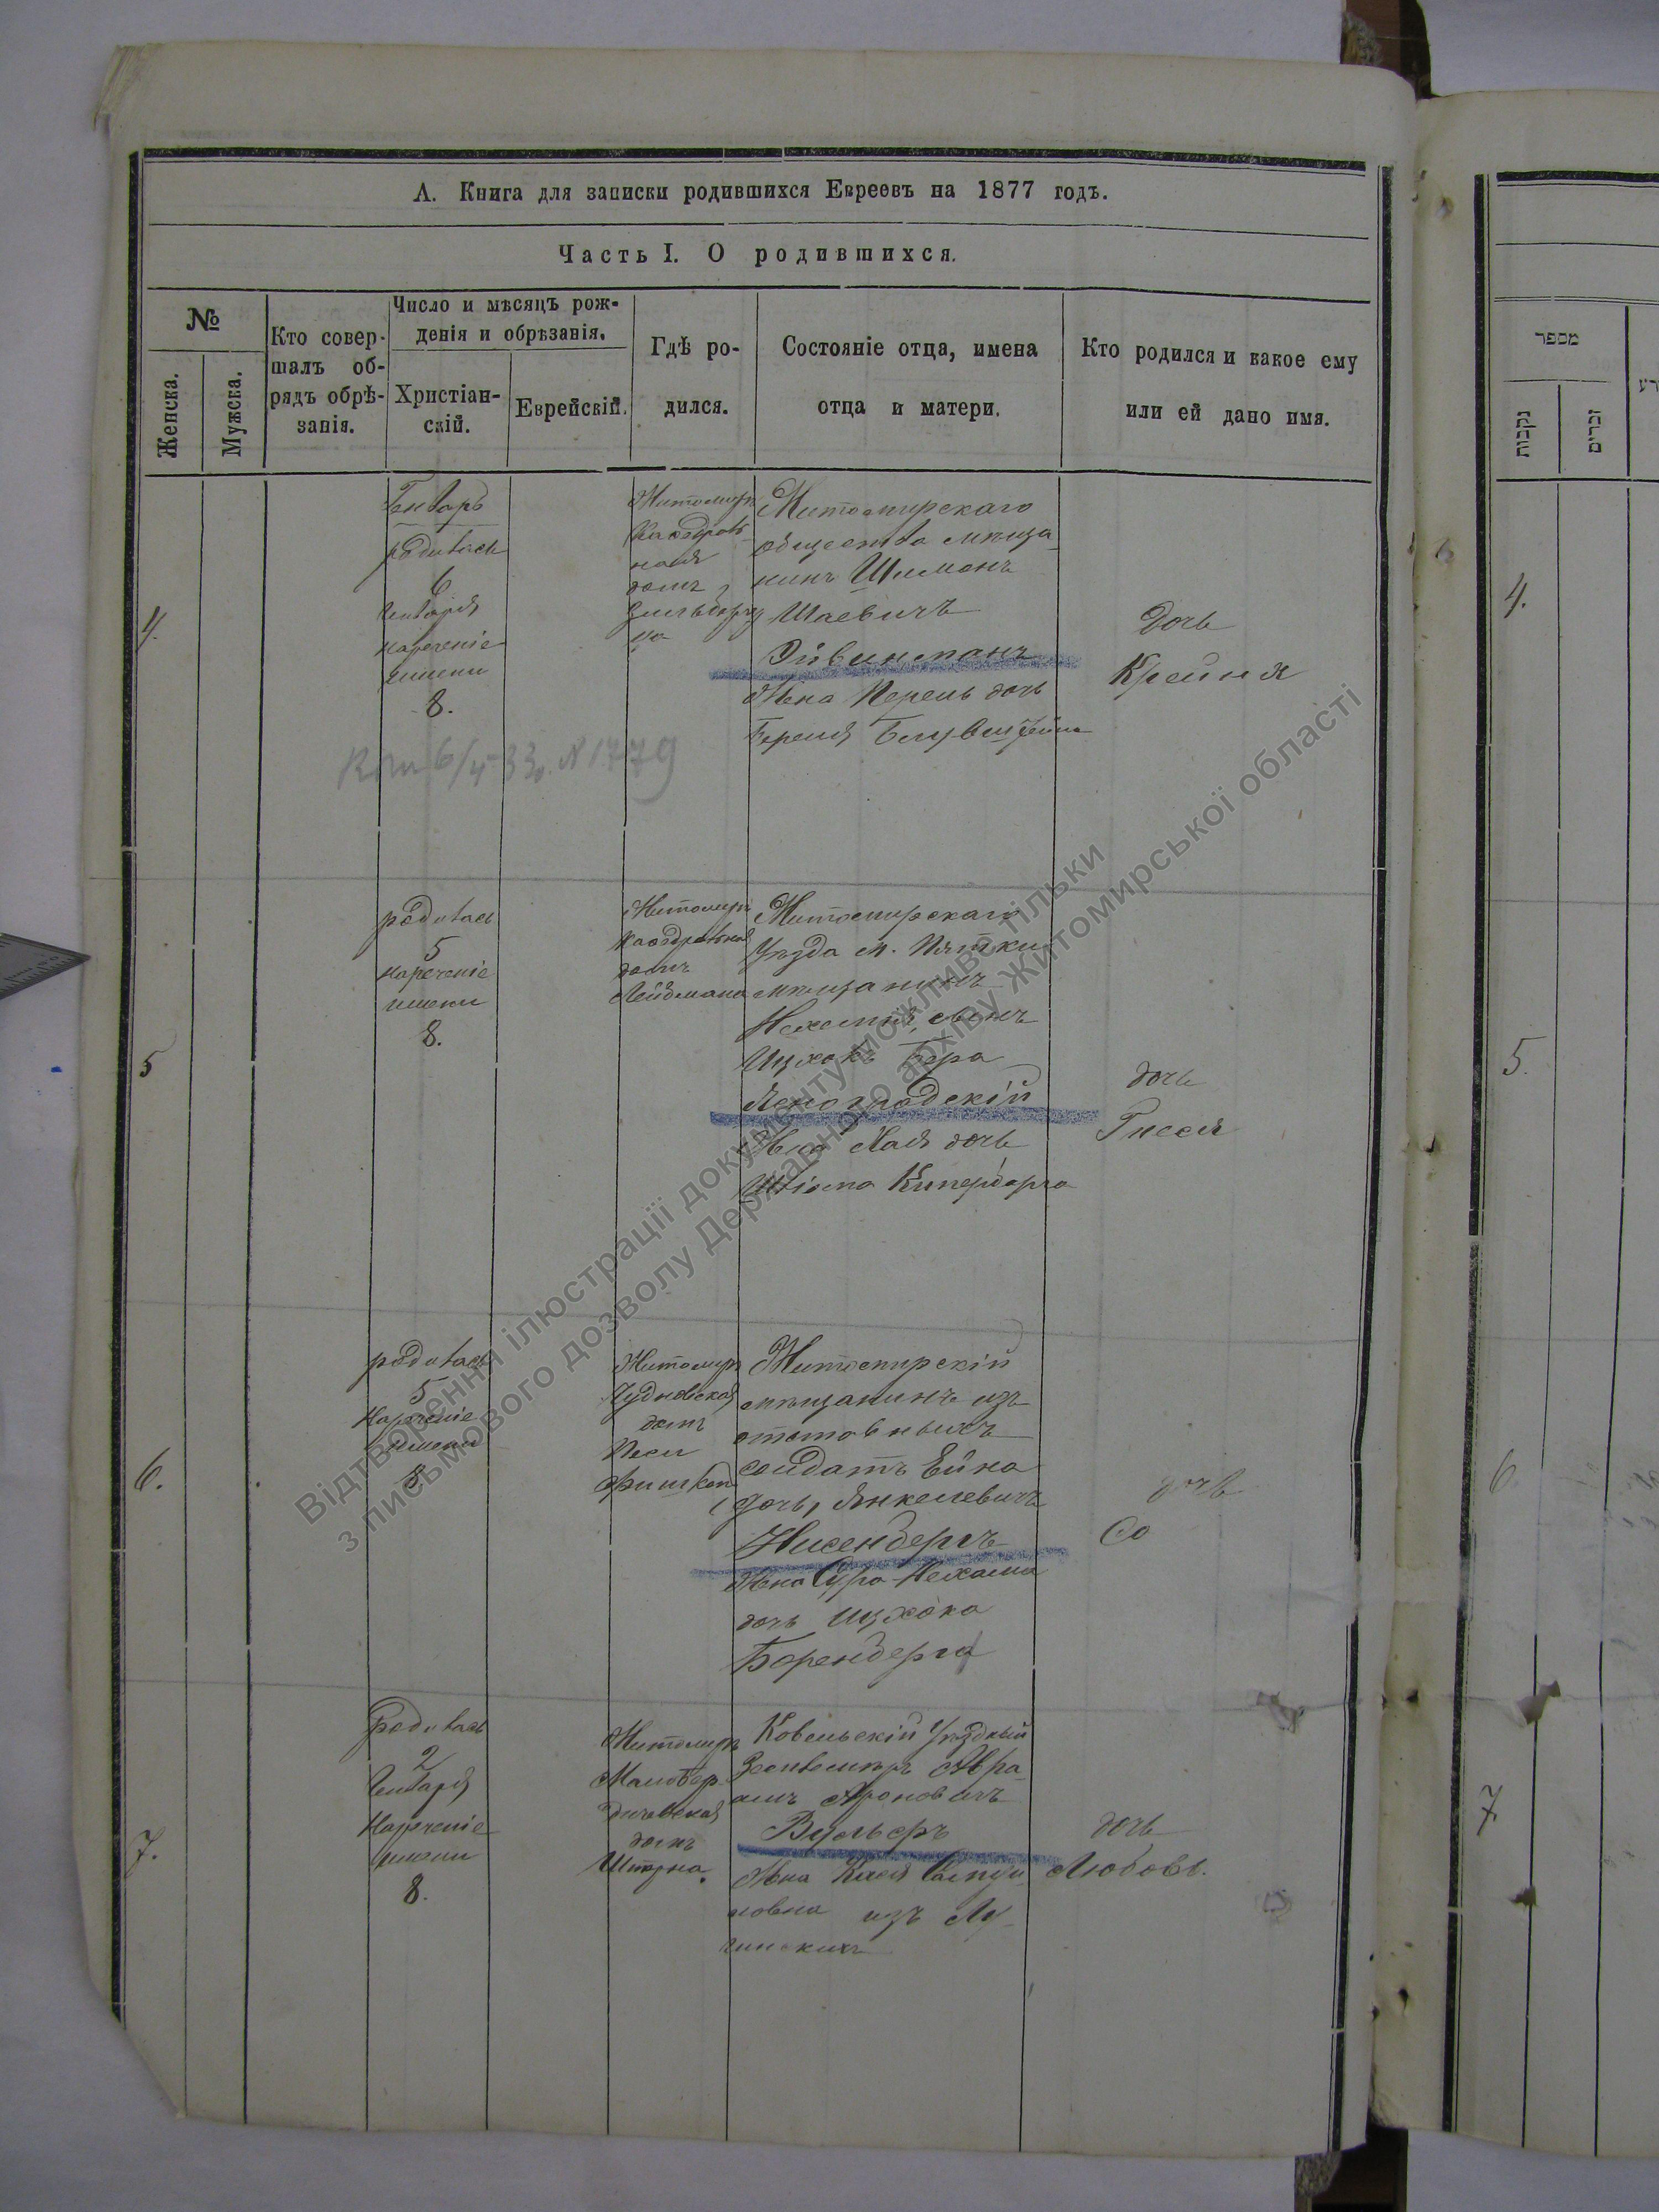 А. Книга для записки родившихся Евреевъ на 1877 годъ.
Часть I. О родившихся.
№
Женска.
Мужска.
Кто совер-
шалъ об-
рядъ обрѣ-
занія.
Число и мѣсяцъ рож-
денія и обрѣзанія.
Христіан-
скій.
Еврейскій.
Гдѣ ро-
дился.
Состояніе отца, имена
отца и матери.
Кто родился и какое ему
или ей дано имя.
4.
Генварь
родилась
6
Генваря
нареченіе
имени
8.
Житомиръ
Кафедраль
ная
домъ
Житомирскаго
общества мѣща-
нинъ Шимонъ
Шаевичъ
Жена Перель дочь
Дочь
Крейня
№ 1779
5
родилась
5
нареченіе
имени
8.
Житомиръ
Кафедральная
домъ
Лейдмана
Житомирскаго
Уѣзда м. Пятки
мѣщанинъ
Ицхокъ Бера
Ясногродскій
Жена Хая дочь
дочь
Гисся
6.
родилась
5
Нареченіе
имени
8
Житомиръ
Чудновская
домъ
Песи
Житомирскій
мѣщанинъ изъ
отставныхъ
солдатъ
Янкелевичъ
Нисенбергъ
Жена Сура Нехама
дочь Ицхока
Боренберга
дочь
Со
7.
Родилась
2
Генваря
Нареченіе
имени
8.
Житомиръ
Малобер-
дичевская
домъ
Штерна.
Ковельскій Уѣздный
Землемѣръ Авра-
амъ Ароновичъ
Вульферъ
Жена
новна изъ Лу-
чинскихъ
дочь
Любовь.
מספר
נקבות
זכרים
4.
5.
6.
7.
Відтворення ілюстрації документу можливе тільки
з письмового дозволу Державного архіву Житомирської області